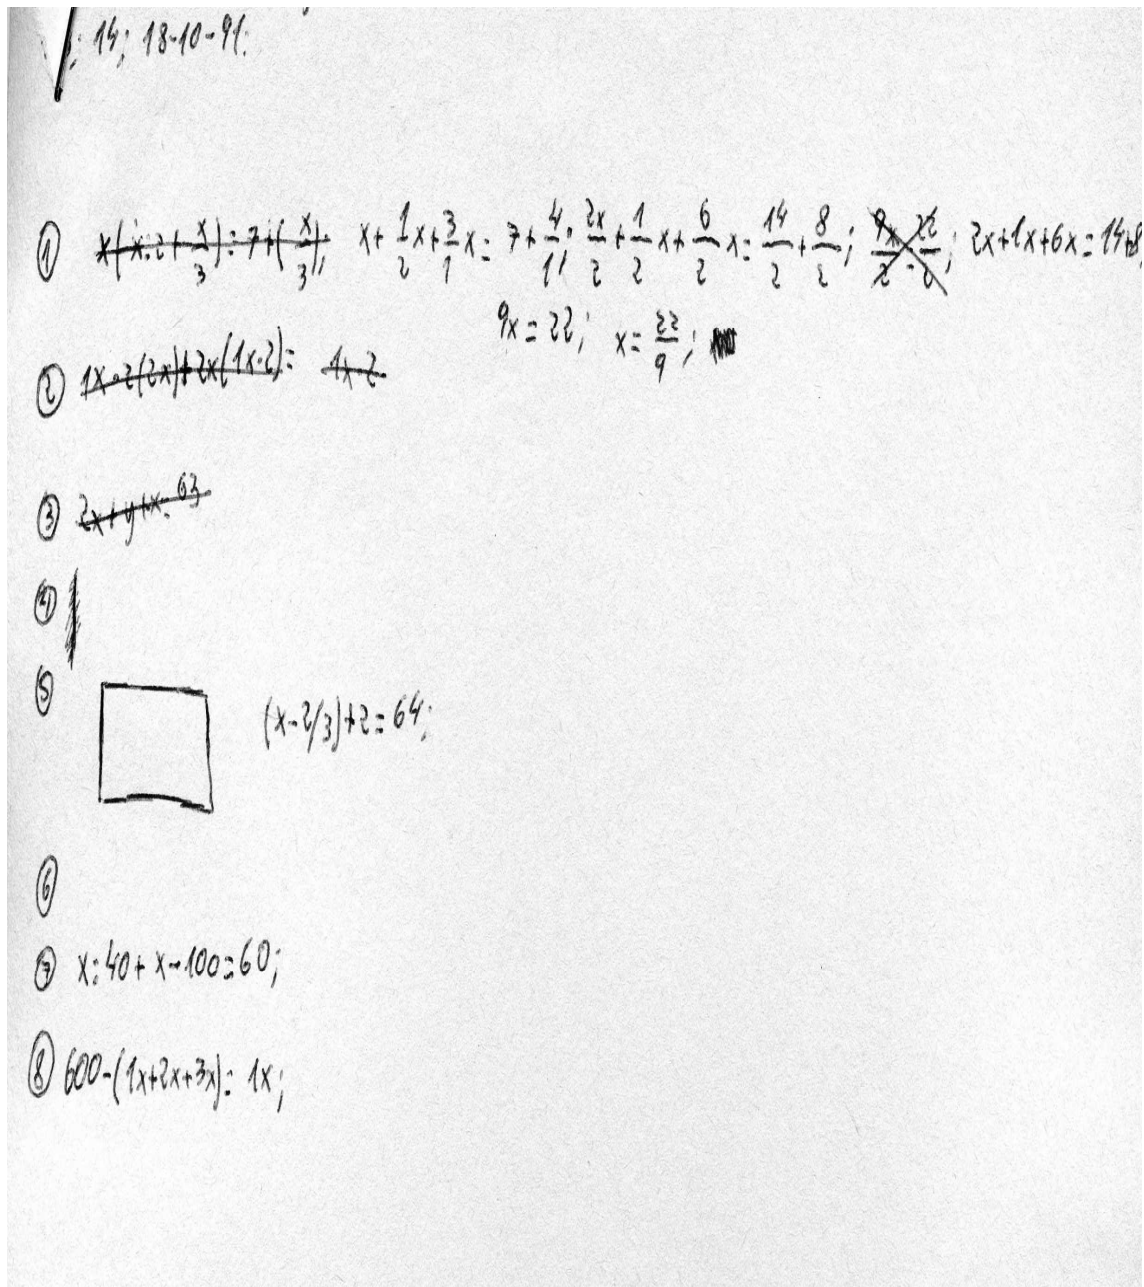 14; 18-10-91.
① x(x:2+x/3)=7+(x/3); x+1/2x+3/1x=7+4/1; 2x/2+1/2x+6/2x=14/2+8/2; 9x/2=22/2; 2x+1x+6x=14+8;
9x=22; x=22/9;
② 1x-2(2x)+2x(1x-2)= 1x-2
③ 2x+y+x=63
④
⑤ (x-2/3)+2=64;
⑥
⑦ x:40+x-100=60;
⑧ 600-(1x+2x+3x)=1x;